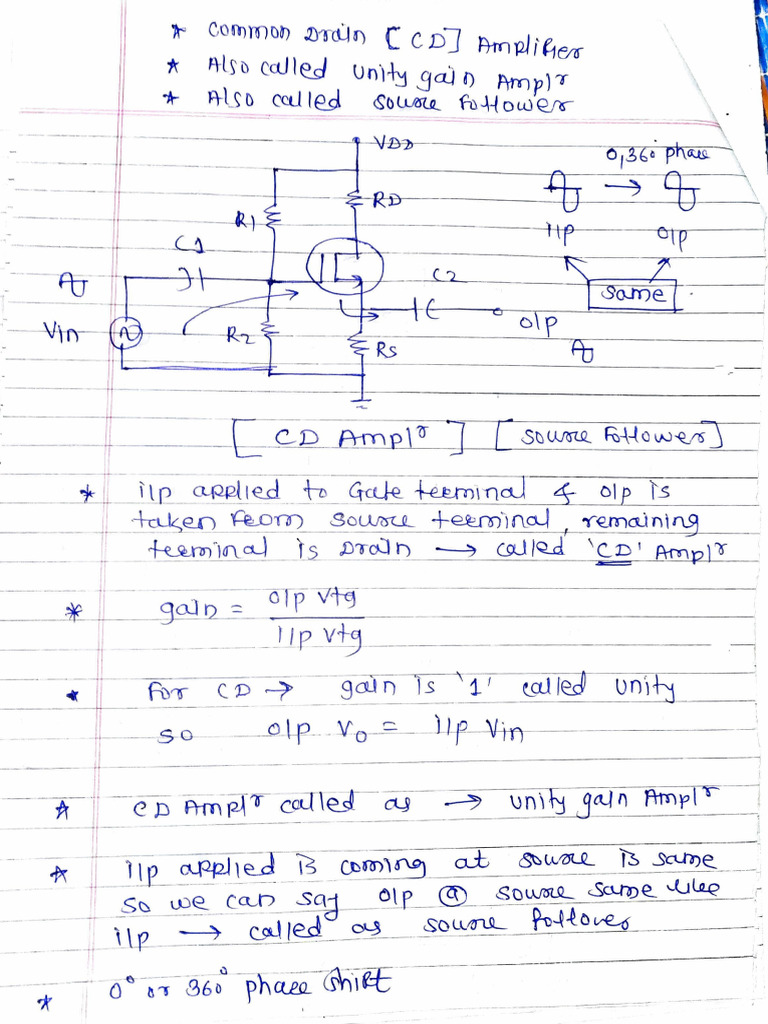 * Common Drain [CD] Amplifier
* Also called unity gain Amplr
* Also called source Follower
VDD
0,360 phase
R1
RD
C1
i/p
o/p
C2
same
Vin
R2
o/p
RS
[ CD Amplr ] [source Follower]
* i/p applied to Gate terminal & o/p is
taken from source terminal, remaining
terminal is Drain → called 'CD' Amplr
* gain = o/p vtg
i/p vtg
* For CD → gain is '1' called unity
so o/p Vo = i/p Vin
* CD Amplr called as → unity gain Amplr
* i/p applied is coming at source is same
so we can say o/p @ source same like
i/p → called as source follower
* 0° or 360° phase shift